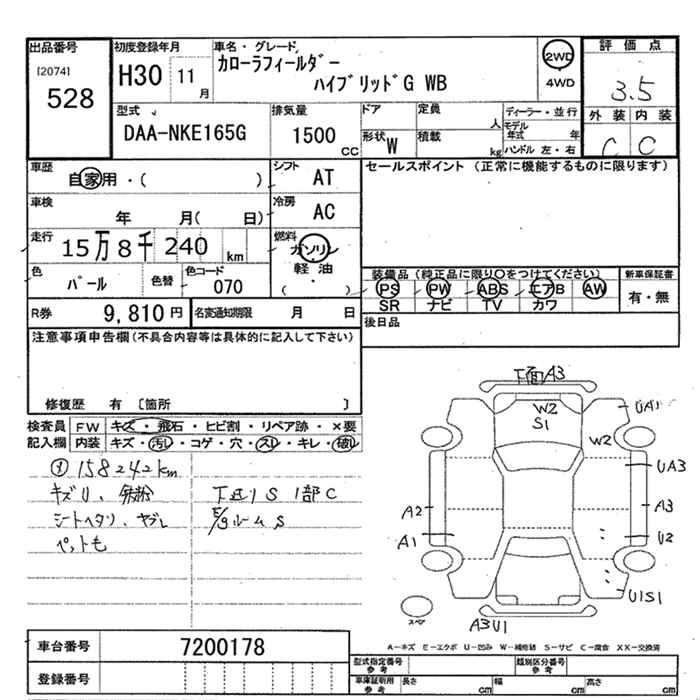 出品番号
[2074]
528
初度登録年月
H30 11 月
車名・グレード
カローラフィールダー
ハイブリッドG WB
2WD
4WD
評価点
3.5
外装 内装
C C
型式
DAA-NKE165G
排気量
1500 CC
ドア
定員 人
形状 W
積載 kg
ディーラー・並行
モデル年式 年
ハンドル 左・右
車歴
自家用・( )
シフト
AT
セールスポイント (正常に機能するものに限ります)
車検
年 月( 日)
冷房
AC
走行
15万8千240 km
燃料
ガソリン
軽油
( ・ )
色
パール
色替
色コード
070
装備品 (純正品に限り○をつけてください)
PS PW ABS エアB AW
SR ナビ TV カワ
新車保証書
有・無
R券
9,810 円
名変通知期限 月 日
後日品
注意事項申告欄(不具合内容等は具体的に記入して下さい)
修復歴 有 〔箇所 〕
検査員記入欄
FW キズ・飛石・ヒビ割・リペア跡・×要
内装 キズ・汚レ・コゲ・穴・スレ・キレ・破レ
158242km
キズU、鉄粉
シートヘタリ、ヤブレ
ペットも
下廻りS 1部C
E/gルームS
下面A3
W2
S1
UA1
W2
UA3
A3
U2
U1S1
A2
A1
スペア
A3U1
A−キズ E−エクボ U−凹み W−補修跡 S−サビ C−腐食 XX−交換済
車台番号
7200178
登録番号
型式指定番号 参考
類別区分番号 参考
車庫証明用 参考
長さ cm
幅 cm
高さ cm